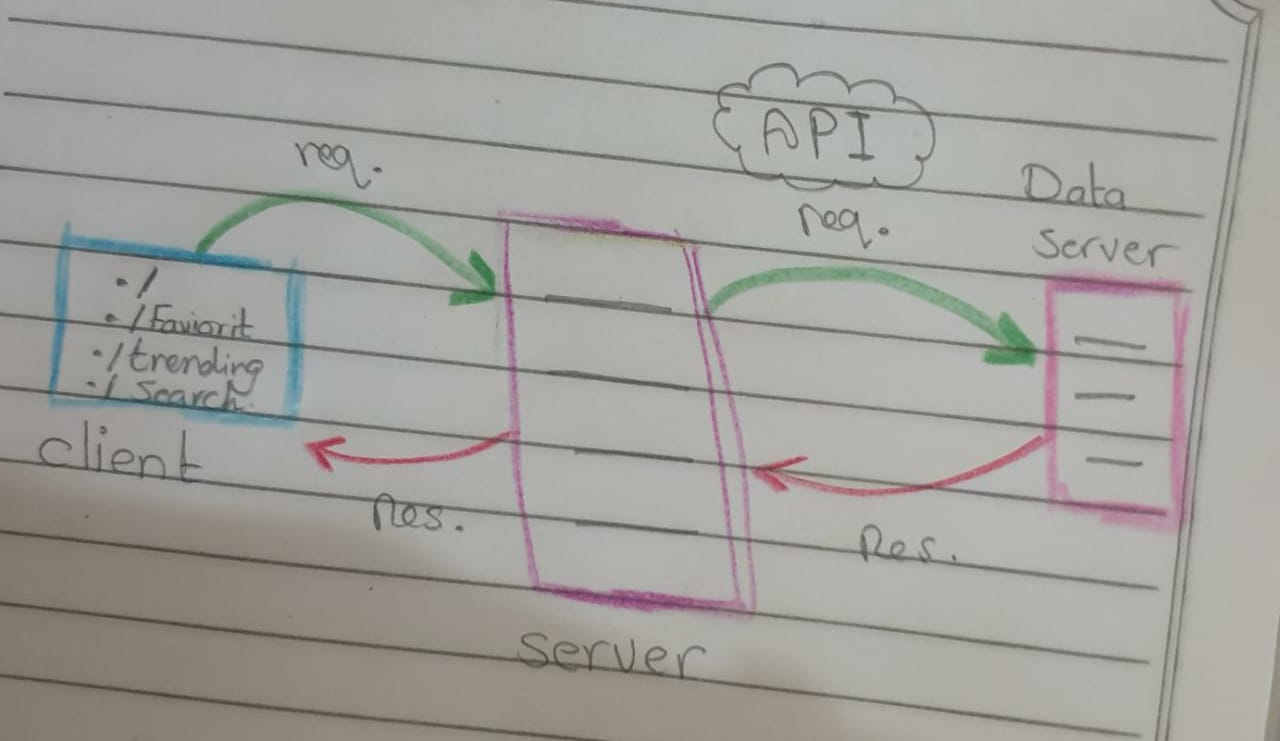 API
req.
Data
Server
req.
./
./Faviorit
./trending
./Search.
client
Res.
Res.
Server